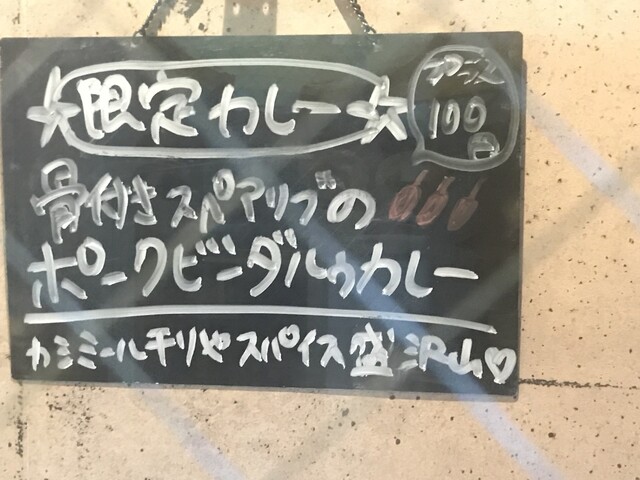 ☆限定カレー☆
プラス
100
円
骨付きスペアリブの
ポークビンダルゥカレー
カシミールチリやスパイス盛沢山♡